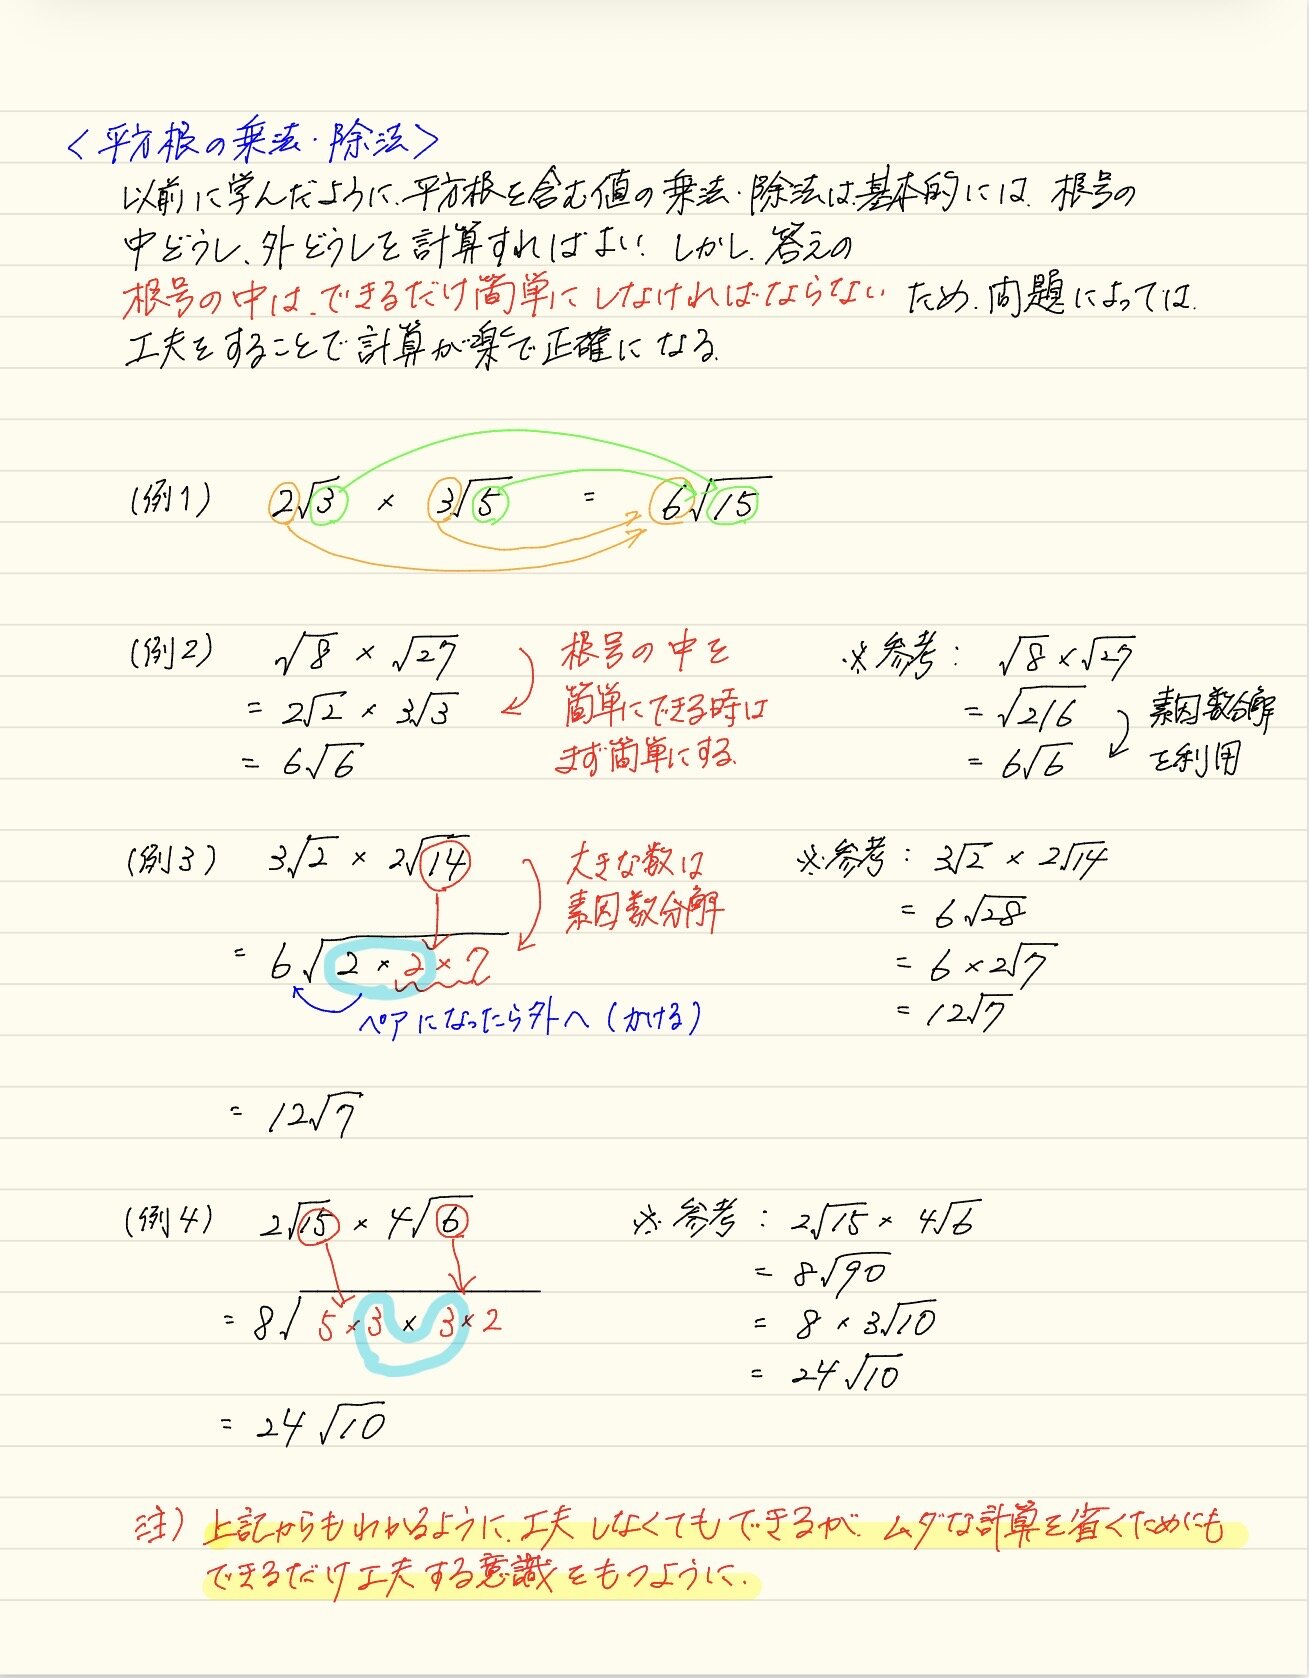 <平方根の乗法・除法>
以前に学んだように、平方根を含む値の乗法・除法は、基本的には、根号の
中どうし、外どうしを計算すればよい。しかし、答えの
根号の中は、できるだけ簡単にしなければならないため、問題によっては、
工夫をすることで計算が楽で正確になる。
(例1) 2√3 × 3√5 = 6√15
(例2) √8 × √27
= 2√2 × 3√3
= 6√6
根号の中を
簡単にできる時は
まず簡単にする。
※参考: √8 × √27
= √216
= 6√6
素因数分解
を利用
(例3) 3√2 × 2√14
= 6√2×2×7
大きな数は
素因数分解
ペアになったら外へ(かける)
= 12√7
※参考: 3√2 × 2√14
= 6√28
= 6 × 2√7
= 12√7
(例4) 2√15 × 4√6
= 8√5×3×3×2
= 24√10
※参考: 2√15 × 4√6
= 8√90
= 8 × 3√10
= 24√10
注) 上記からもわかるように、工夫しなくてもできるが、ムダな計算を省くためにも
できるだけ工夫する意識をもつように。